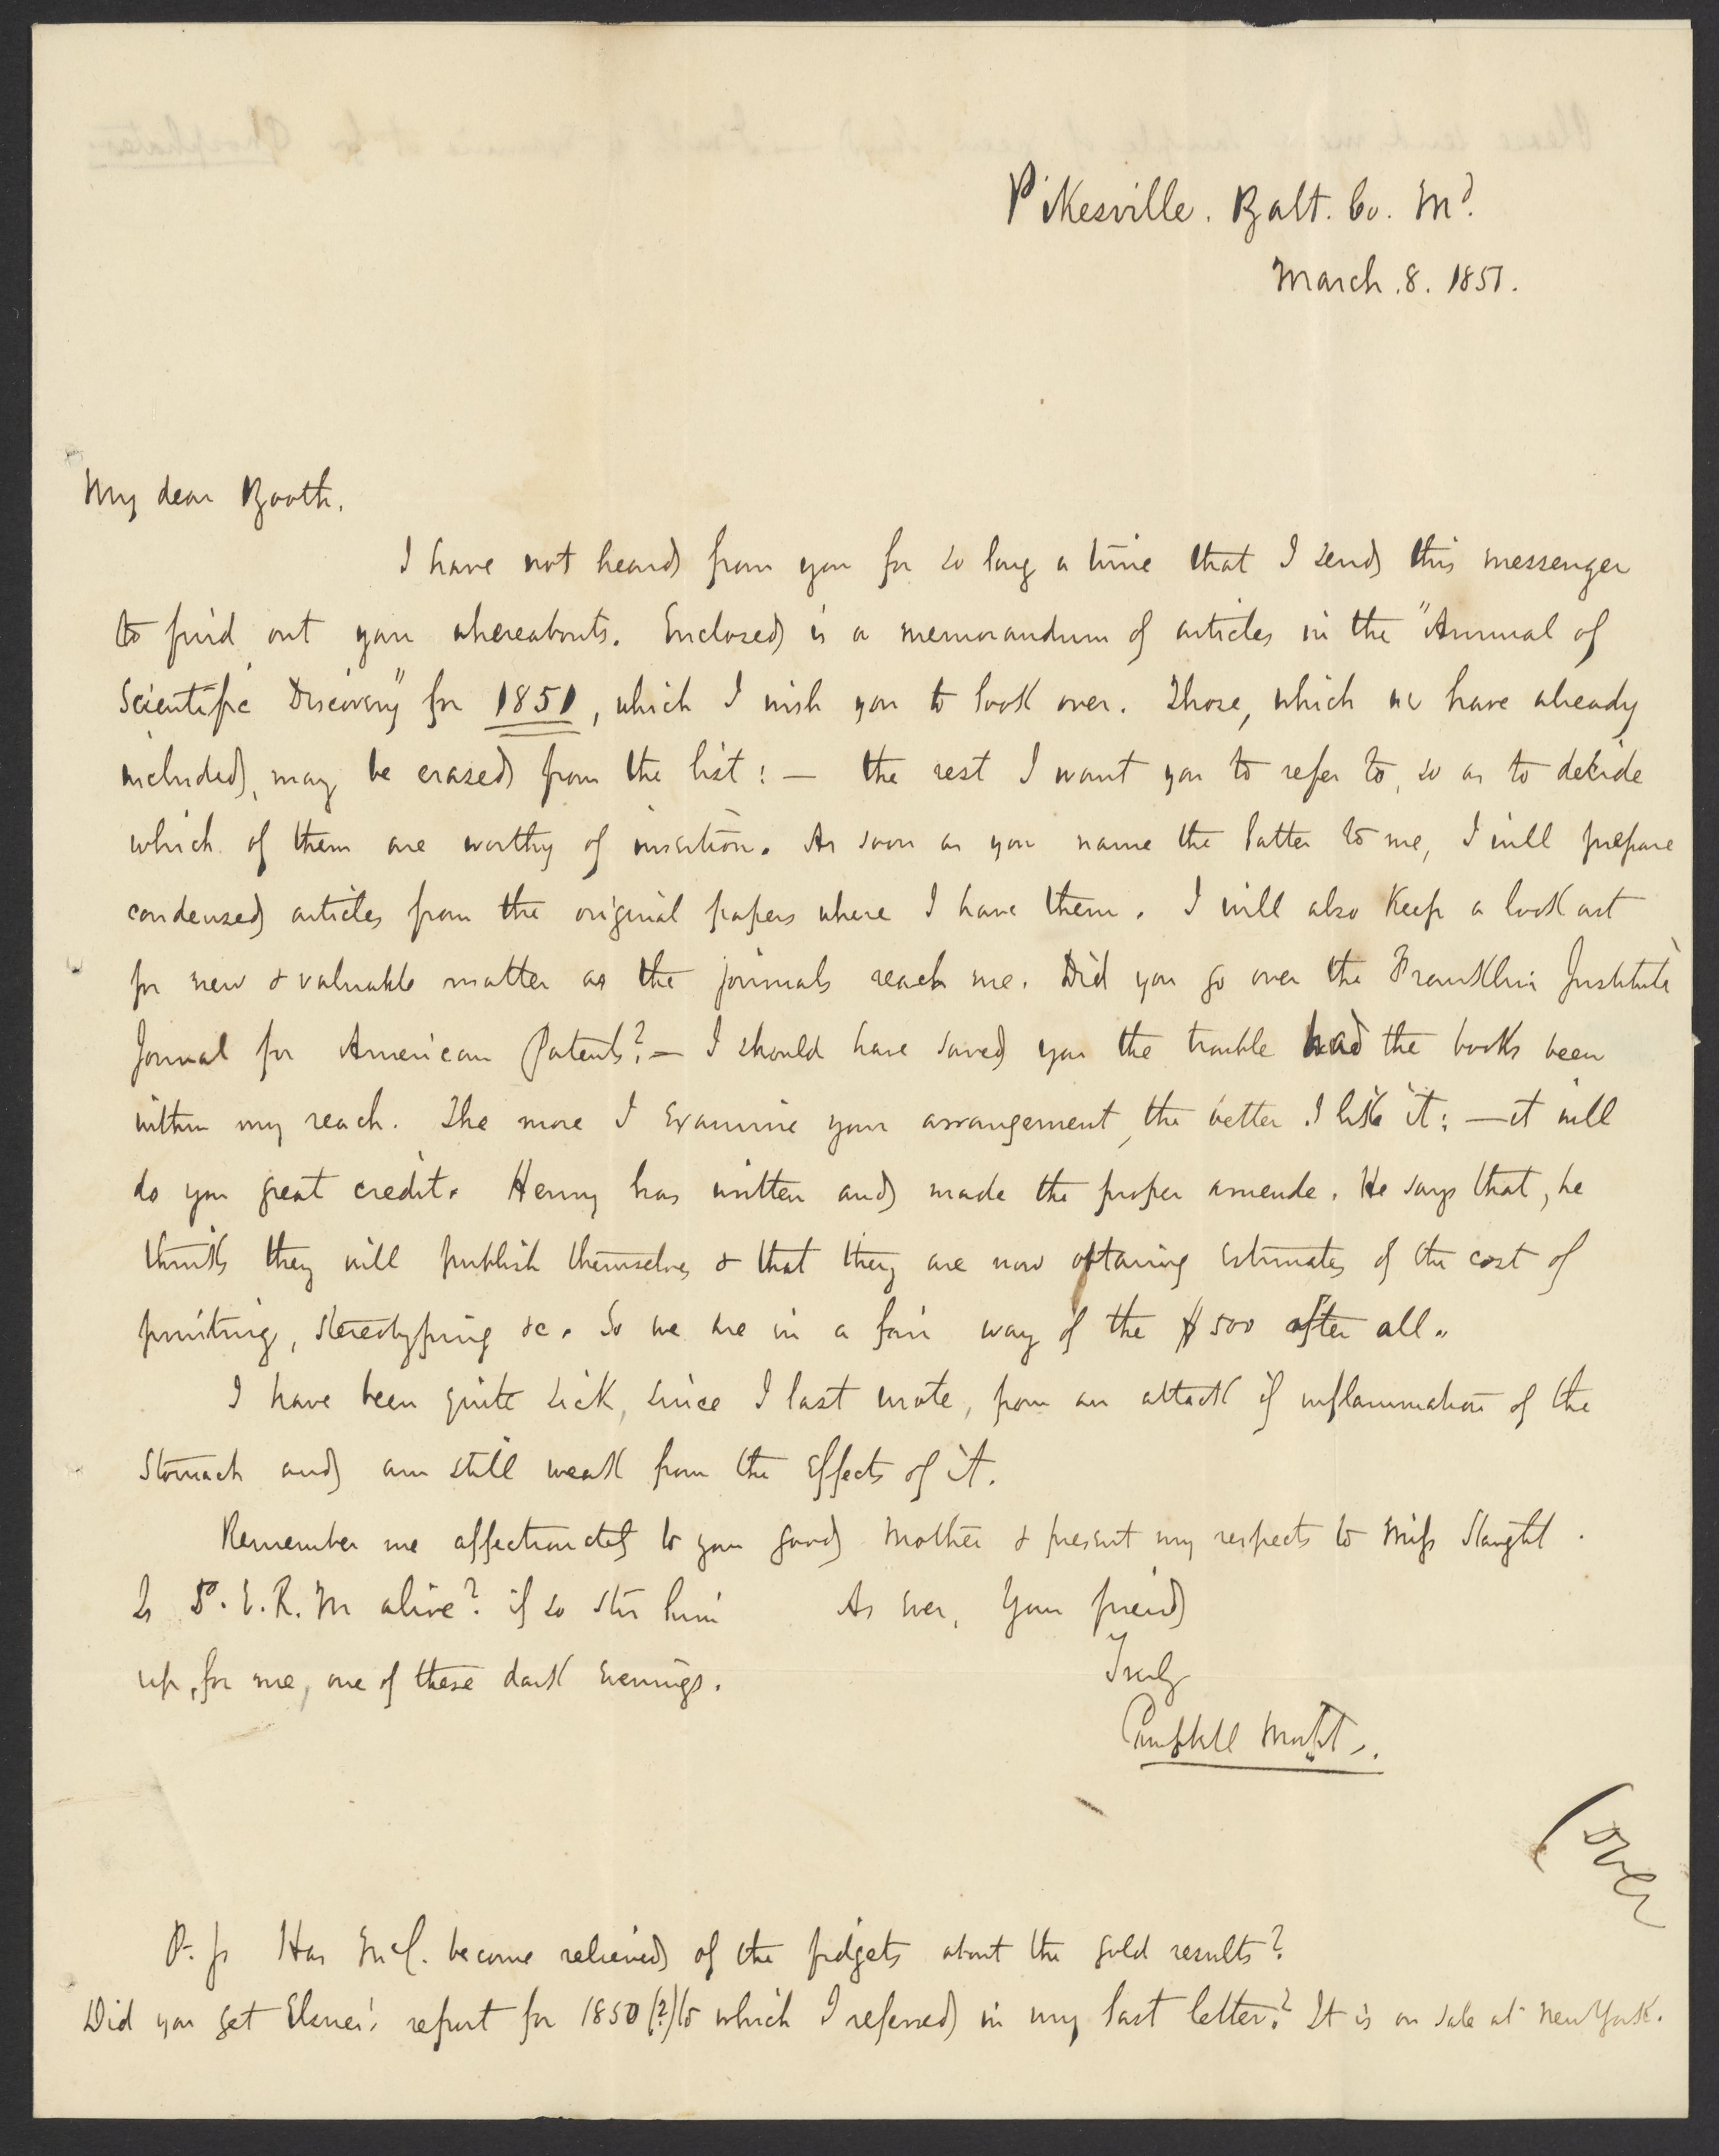 Pikesville. Balt. Co. Md.
March. 8. 1851.
My dear Booth.
I have not heard from you for so long a time that I send this messenger
to find out your whereabouts. Enclosed is a memorandum of articles in the "Annual of
Scientific Discovery" for 1851, which I wish you to look over. Those, which we have already
included, may be erased from the list: — the rest I want you to refer to, so as to decide
which of them are worthy of insertion. As soon as you name the latter to me, I will prepare
condensed articles from the original papers where I have them. I will also keep a look out
for new & valuable matter as the journals reach me. Did you go over the Franklin Institute
Journal for American Patents? — I should have saved you the trouble had the books been
within my reach. The more I examine your arrangement, the better I like it: — it will
do you great credit. Henry has written and made the proper amende. He says that, he
thinks they will publish themselves & that they are now obtaining estimates of the cost of
printing, stereotyping &c. So we are in a fair way of the $500 after all.
I have been quite sick, since I last wrote, from an attack of inflammation of the
stomach and am still weak from the effects of it.
Remember me affectionately to your good Mother & present my respects to Miss Slaught.
Is P. E. R. M alive? if so stir him As ever, Your friend
up, for me, one of these dark evenings. Truly
Campbell Morfit.
(over
P. S Has McC. become relieved of the fidgets about the gold results?
Did you get Elsner's report for 1850 (?) to which I referred in my last letter? It is on sale at New York.